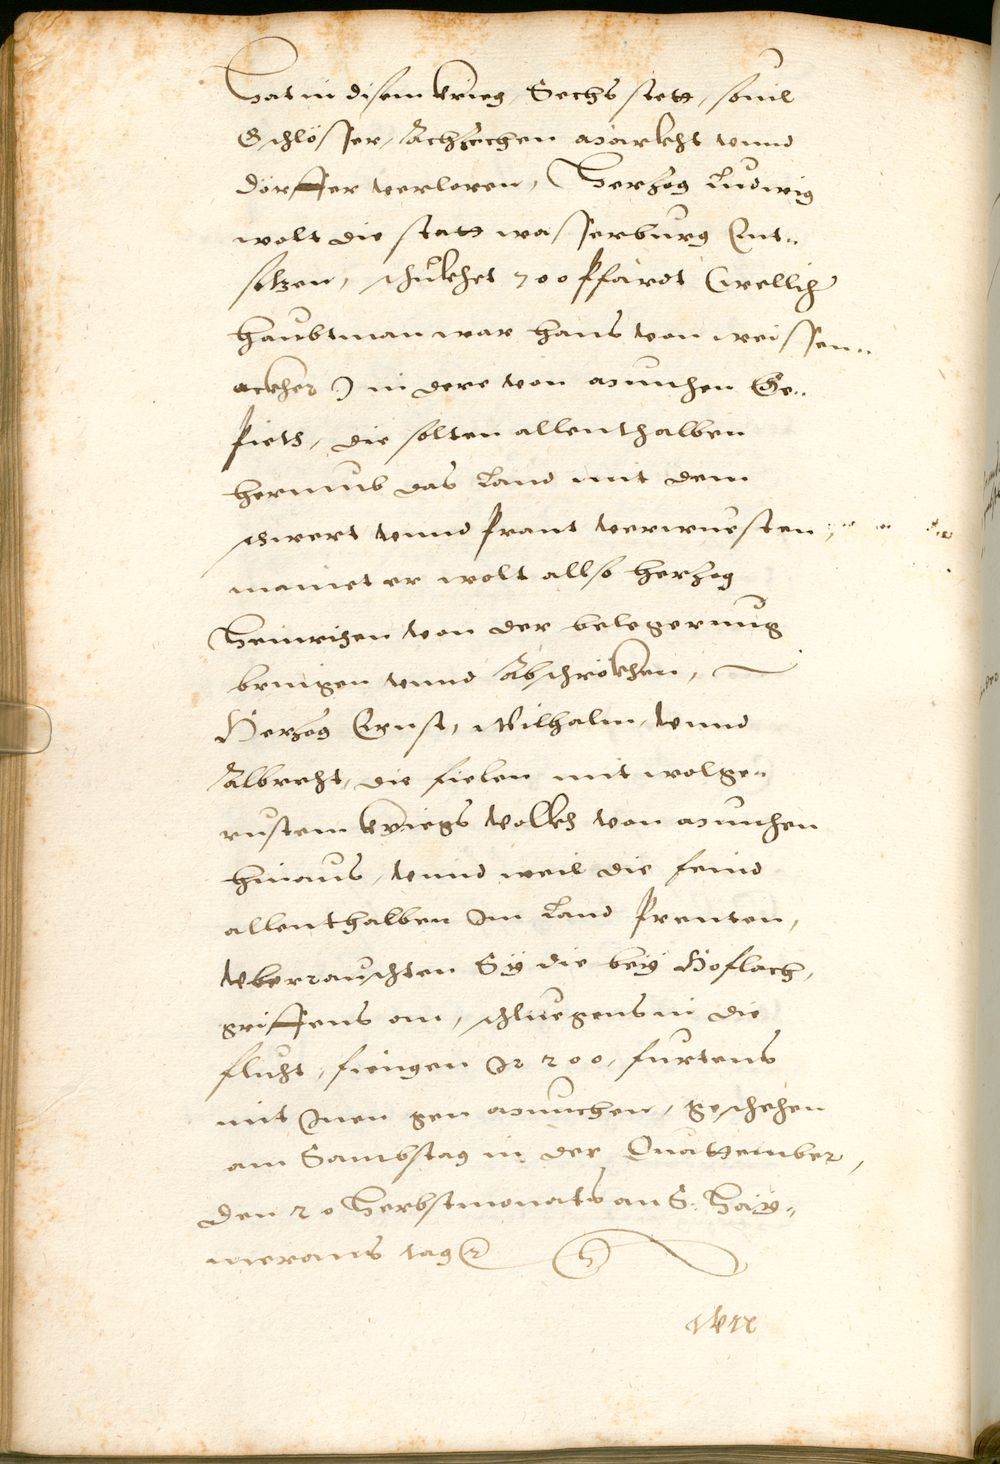 Hat in disem krieg, Sechs stett, souil
Schlösser, Achzechen Märkht vnnd
dörffer verloren, Herzog Ludwig
wolt die statt wasserburg Ent„
sezen, schükhet 700 Pfärdt (wellich
haubtman war hans von weissen„
ackher) in dere von München Ge„
Piets, die solten allenthalben
herumb das Land mit dem
schwert vnnd Prant verwuesten,
mainet er wolt allso herzog
Heinrichen von der belegerung
bringen vnnd Abschrökhen,
Herzog Ernst, Wilhalm, vnnd
Albrecht, die fielen mit wolge„
rustem kriegs volkh von München
hinaus, vnnd weil die feind
allenthalben Im Land Prenten,
vberraschten Sÿ die beÿ Hoflach,
griffens an, schluegens in die
flucht, fiengen Ir 200, furtens
mit Inen gen München, geschehen
am Sambstag in der Quattember,
den 20 Herbstmonats an S. Haÿ„
merans tag